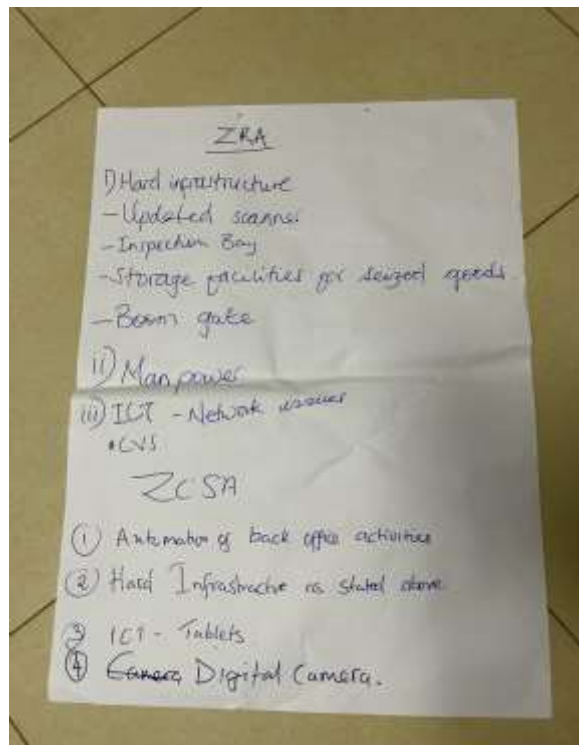 ZRA
i) Hard infrastructure
- Updated scanner
- Inspection Bay
- Storage facilities for seized goods
- Boom gate
ii) Man power
iii) ICT - Network issues
• CVS
ZCSA
① Automation of back office activities
② Hard Infrastructive as stated above
③ ICT - Tablets
④ Camera Digital Camera.